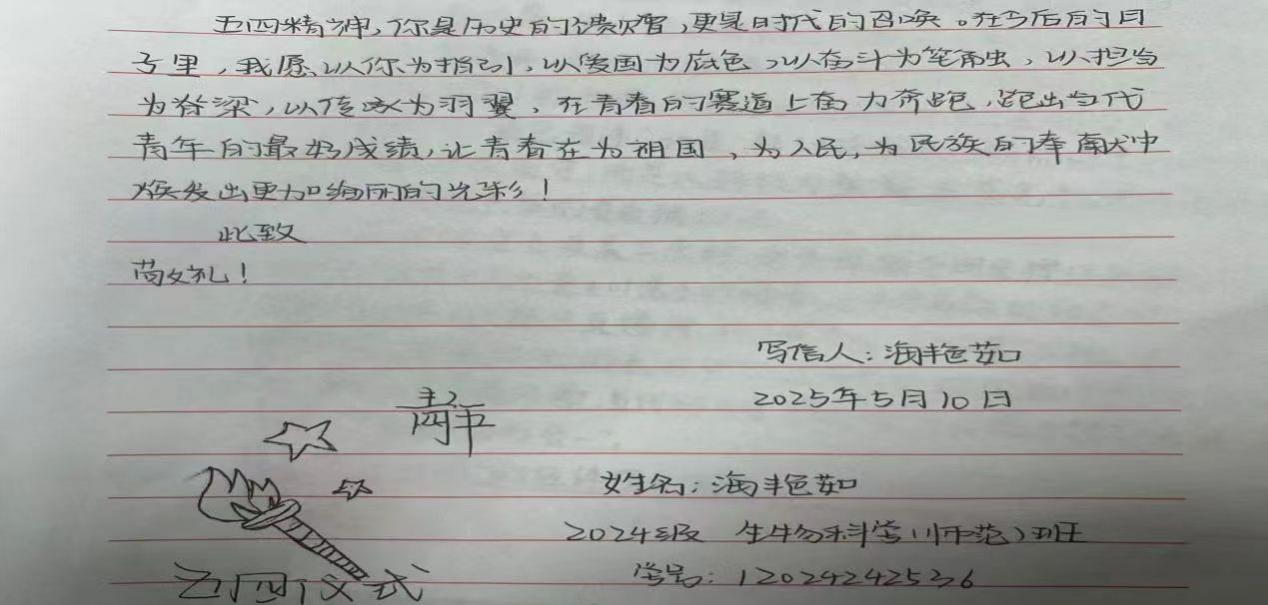 五四精神，你是历史的馈赠，更是时代的召唤。在今后的日
子里，我愿以你为指引，以爱国为底色，以奋斗为笔触，以担当
为脊梁，以传承为羽翼，在青春的赛道上奋力奔跑，跑出当代
青年的最好成绩，让青春在为祖国，为人民，为民族的奉献中
焕发出更加绚丽的光彩！
此致
敬礼！
写信人：海艳茹
2025年5月10日
青年
姓名：海艳茹
2024级 生物科学（师范）班
学号：12024242536
五四仪式